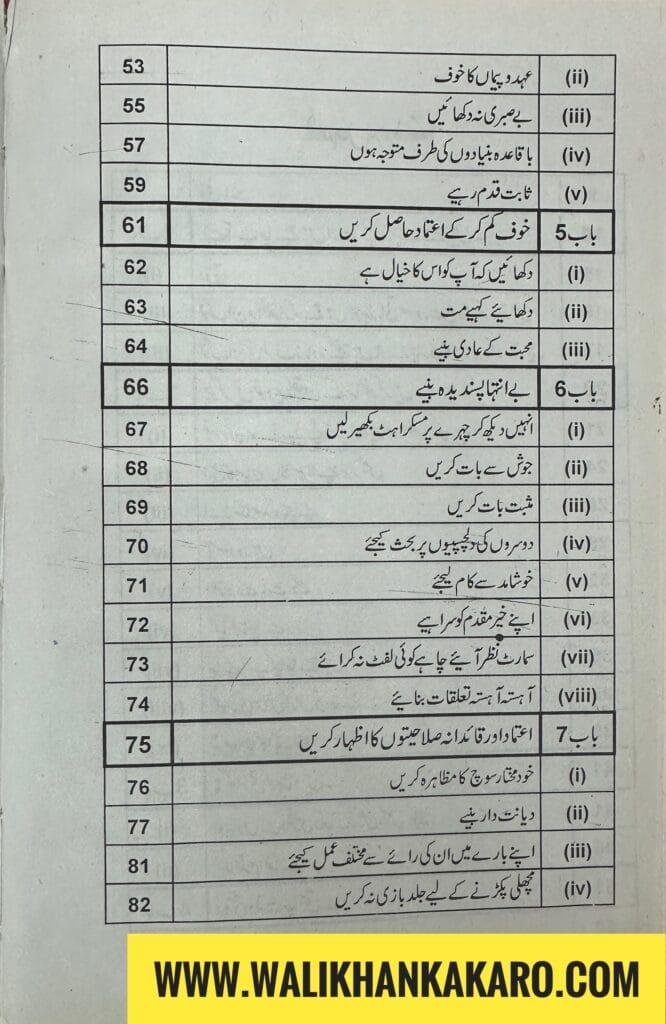 (ii) عہد و پیماں کا خوف 53
(iii) بے صبری نہ دکھائیں 55
(iv) باقاعدہ بنیادوں کی طرف متوجہ ہوں 57
(v) ثابت قدم رہیے 59
باب 5 خوف کم کر کے اعتماد حاصل کریں 61
(i) دکھائیں کہ آپ کو اس کا خیال ہے 62
(ii) دکھائیے کہیے مت 63
(iii) محبت کے عادی بنیے 64
باب 6 بے انتہا پسندیدہ بنیے 66
(i) انہیں دیکھ کر چہرے پر مسکراہٹ بکھیر لیں 67
(ii) جوش سے بات کریں 68
(iii) مثبت بات کریں 69
(iv) دوسروں کی دلچسپیوں پر بحث کیجئے 70
(v) خوشامد سے کام لیجئے 71
(vi) اپنے خیر مقدم کو سراہیے 72
(vii) سمارٹ نظر آیئے چاہے کوئی لفٹ نہ کرائے 73
(viii) آہستہ آہستہ تعلقات بنائیے 74
باب 7 اعتماد اور قائدانہ صلاحیتوں کا اظہار کریں 75
(i) خود مختار سوچ کا مظاہرہ کریں 76
(ii) دیانت دار بنیے 77
(iii) اپنے بارے میں ان کی رائے سے مختلف عمل کیجئے 81
(iv) مچھلی پکڑنے کے لیے جلد بازی نہ کریں 82
WWW.WALIKHANKAKARO.COM